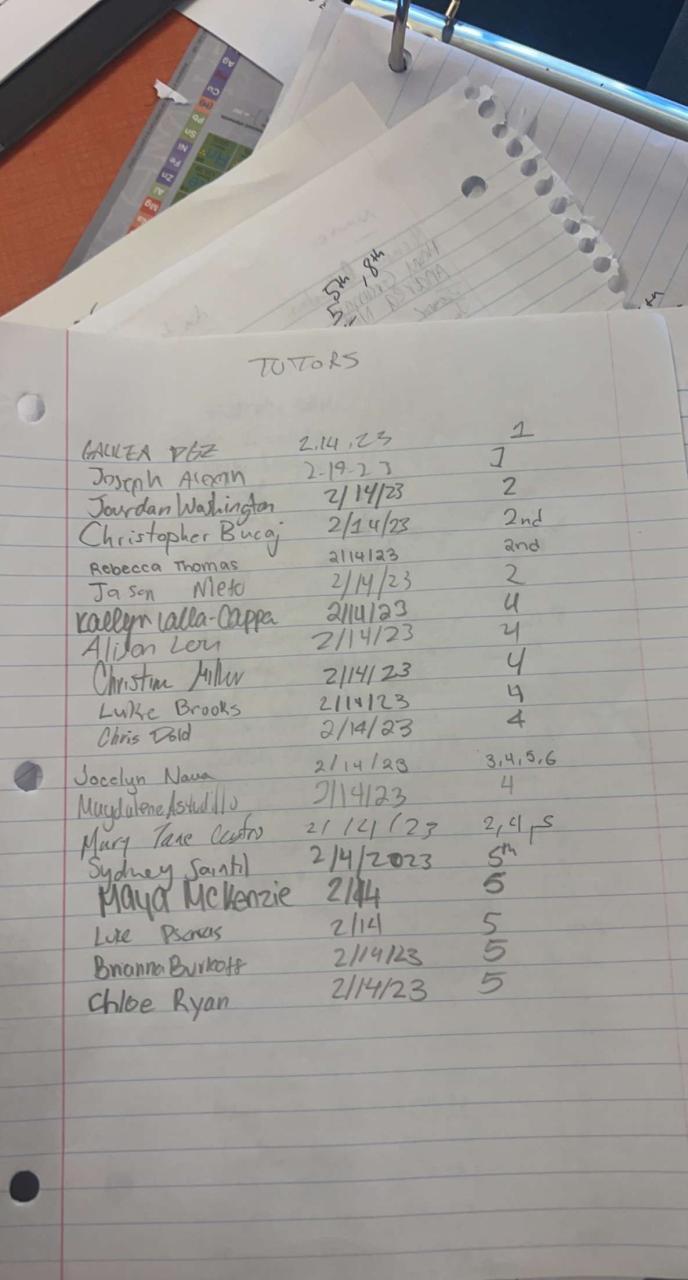 Ag
Cu
(H)
Pb
Sn
Ni
Fe
Zn
Al
Mg
5th, 8th
TUTORS
GALILEA 2.14.23 1
Joseph 2-19-23 1
Jourdan Washington 2/14/23 2
Christopher Bucaj 2/14/23 2nd
Rebecca Thomas 2/14/23 2nd
Jason Nieto 2/14/23 2
Kaelyn Lalla-Cappa 2/14/23 4
Alison Leon 2/14/23 4
Christine Miller 2/14/23 4
Luke Brooks 2/14/23 4
Chris Dold 2/14/23 4
Jocelyn Nava 2/14/23 3,4,5,6
Magdalene Astudillo 2/14/23 4
Mary Jane Castro 2/14/23 2,4,5
Sydney Saintil 2/4/2023 5th
Maya McKenzie 2/14 5
Luke 2/14 5
Brianna Burkoff 2/14/23 5
Chloe Ryan 2/14/23 5